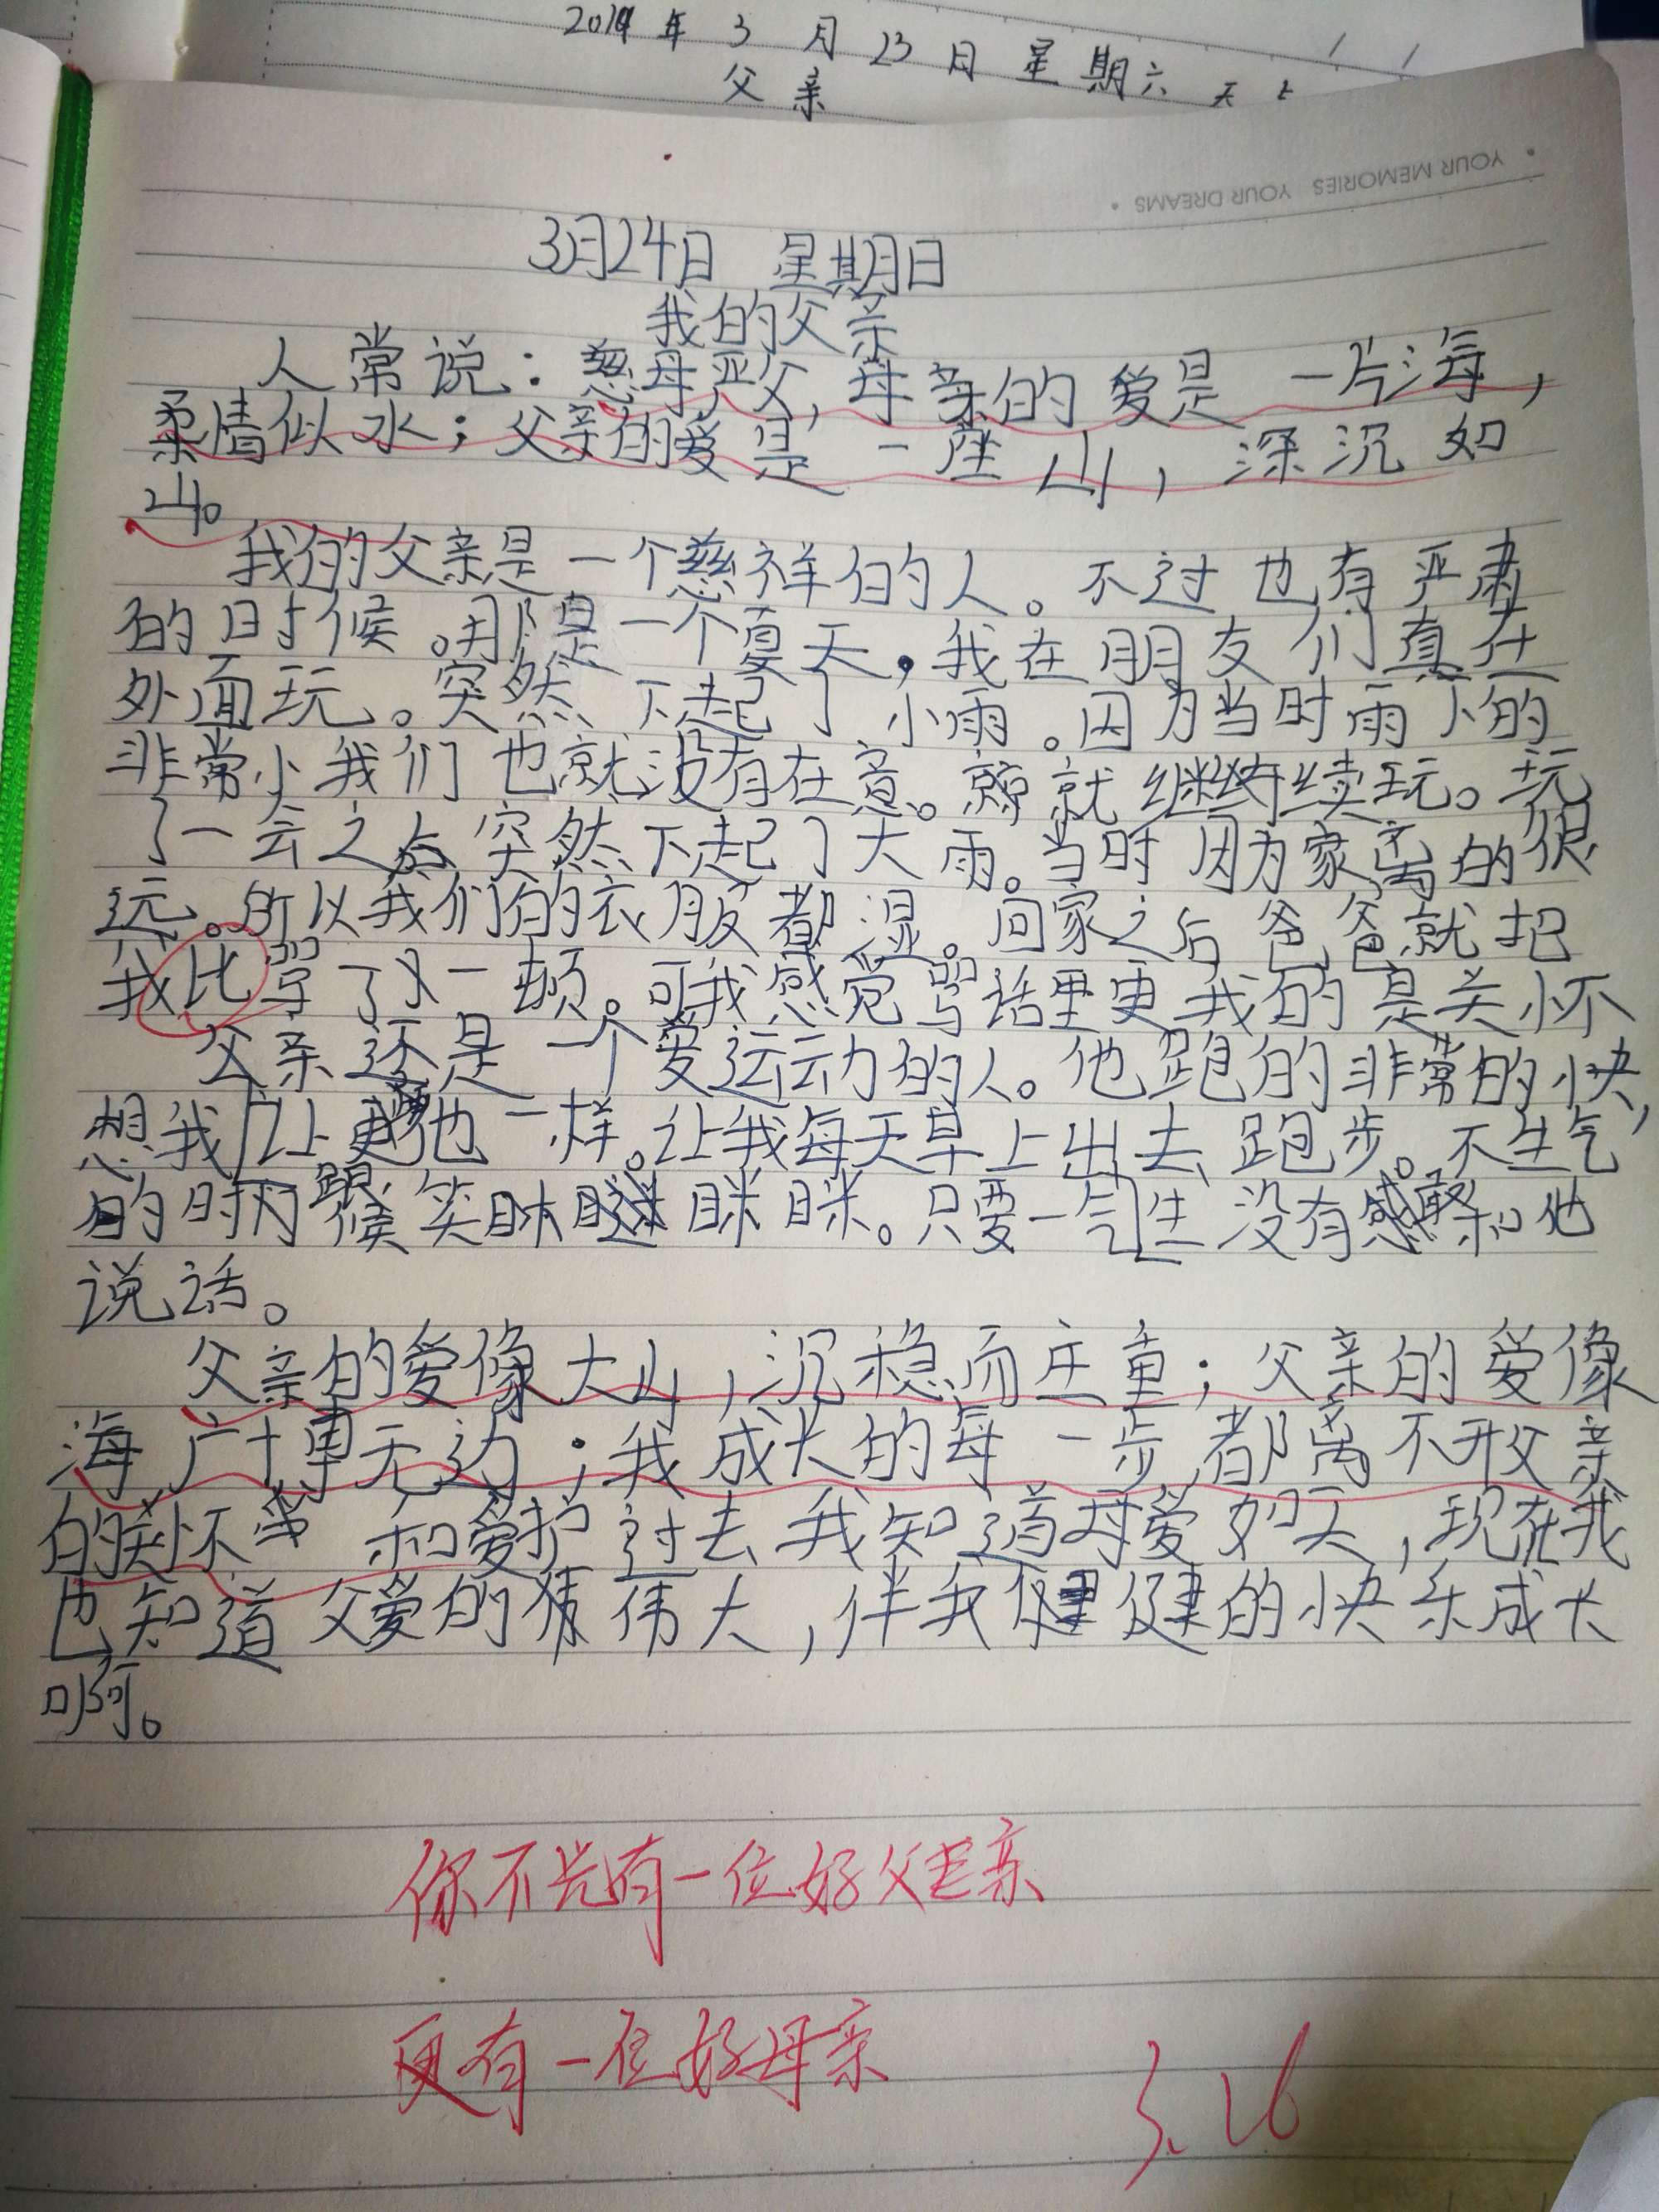 2019年3月23日星期六 天
父亲
YOUR MEMORIES YOUR DREAMS
3月24日 星期日
我的父亲
人常说：慈母严父，母亲的爱是一片海，
柔情似水；父亲的爱是一座山，深沉如
山。
我的父亲是一个慈祥的人。不过也有严肃
的时候。那是一个夏天，我在朋友们真在
外面玩。突然下起了小雨。因为当时雨下的
非常小我们也就没有在意。就继续玩。玩
了一会之后突然下起了大雨。当时因为家离的很
远。所以我们的衣服都湿。回家之后爸爸就把
我比骂了一顿。可我感觉骂话里更我的是关怀
父亲还是一个爱运动的人。他跑的非常的快，
想我让他一样。让我每天早上出去跑步。不生气
的时候笑眯眯眯。只要一气生没有和他
说话。
父亲的爱像大山，沉稳而庄重；父亲的爱像
海广博无边；我成长的每一步都离不开父亲
的关怀和爱护过去我知道母爱如天，现在我
也知道父爱的伟大，伴我健的快乐成长
啊。
你不光有一位好父亲
更有一位好母亲
3.26